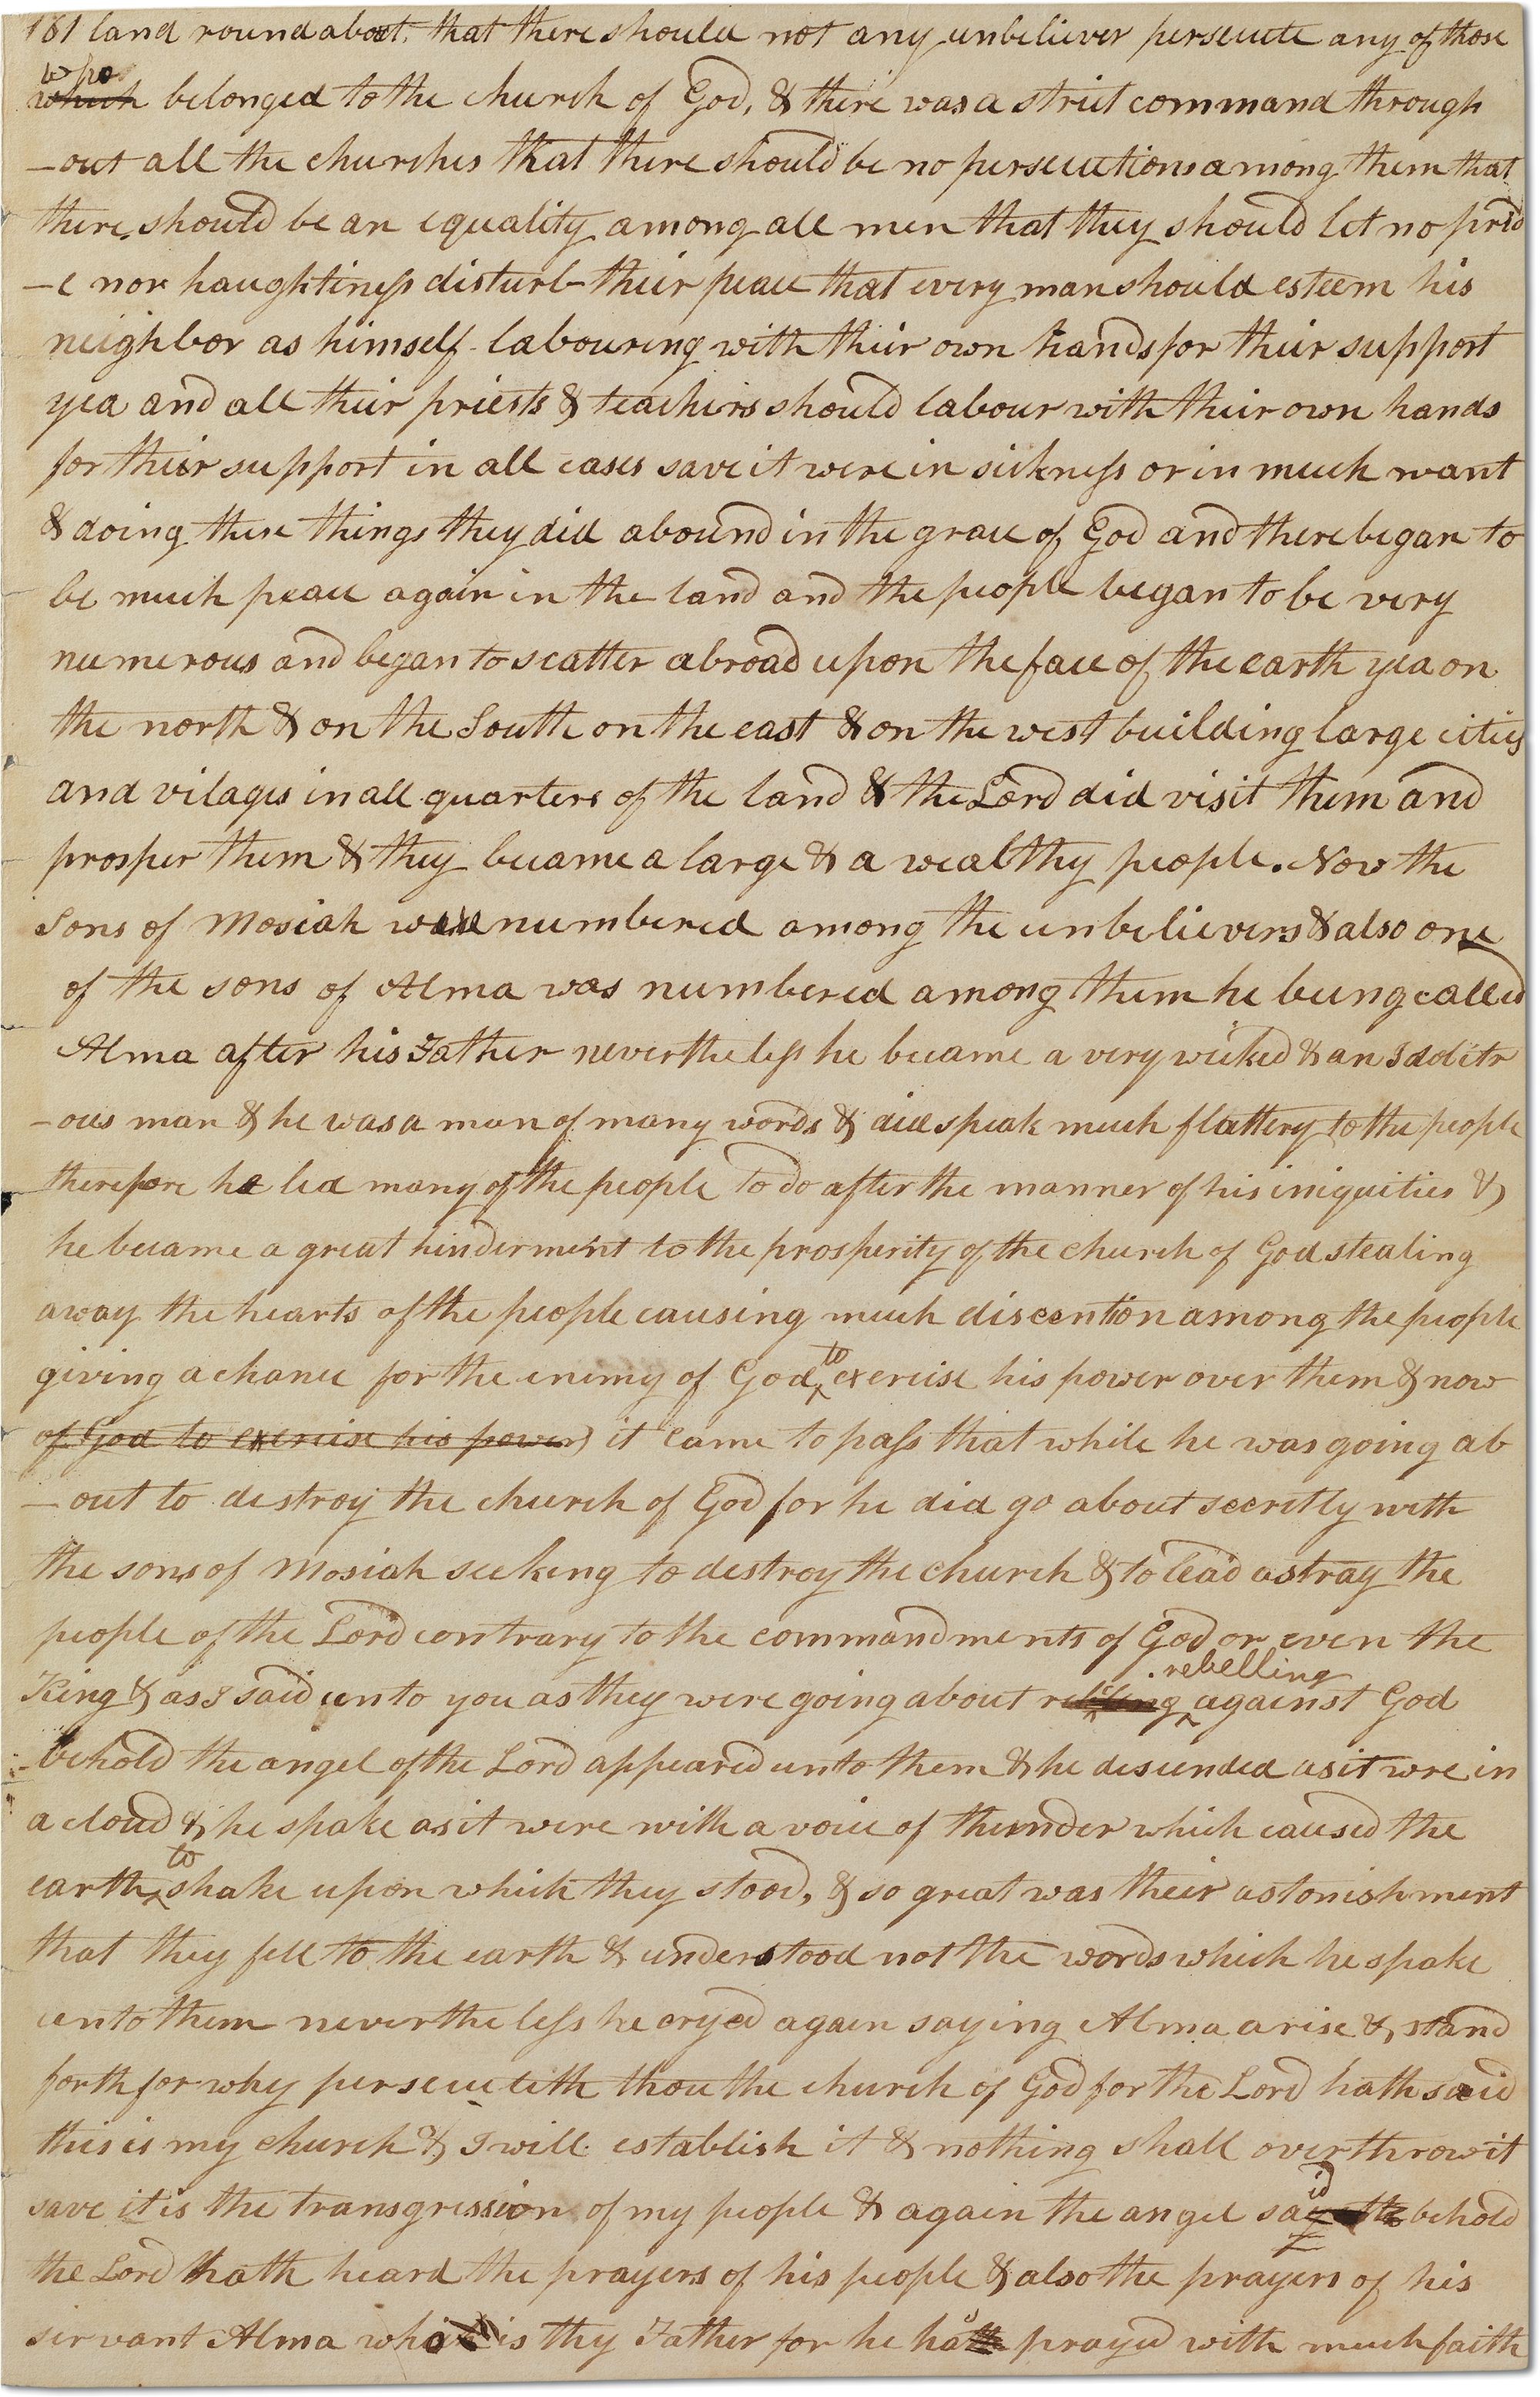 181 land round about, that there should not any unbeliever persecute any of those
who
which belonged to the church of God, & there was a strict command through
-out all the churches that there should be no persecutions among them that
there should be an equality among all men that they should let no prid
-e nor haughtiness disturb their peace that every man should esteem his
neighbor as himself labouring with their own hands for their support
yea and all their priests & teachers should labour with their own hands
for their support in all cases save it were in sickness or in much want
& doing these things they did abound in the grace of God and there began to
be much peace again in the land and the people began to be very
numerous and began to scatter abroad upon the face of the earth yea on
the north & on the South on the east & on the west building large cities
and vilages in all quarters of the land & the Lord did visit them and
prosper them & they became a large & a wealthy people. Now the
Sons of Mosiah were numbered among the unbelievers & also one
of the sons of Alma was numbered among them he being called
Alma after his Father nevertheless he became a very wicked & an Idolitr
-ous man & he was a man of many words & did speak much flattery to the people
therefore he led many of the people to do after the manner of his iniquities &
he became a great hinderment to the prosperity of the church of God stealing
away the hearts of the people causing much discention among the people
giving a chance for the enemy of God to exercise his power over them & now
of God to exercise his power) it came to pass that while he was going ab
-out to destroy the church of God for he did go about secretly with
the sons of Mosiah seeking to destroy the church & to lead astray the
people of the Lord contrary to the commandments of God or even the
rebelling
King & as I said unto you as they were going about against God
behold the angel of the Lord appeared unto them & he descended as it wre in
a cloud & he spake as it were with a voice of thunder which caused the
earth to shake upon which they stood, & so great was their astonishment
that they fell to the earth & understood not the words which he spake
unto them nevertheless he cryed again saying Alma arise & stand
forth for why persecuteth thou the church of God for the Lord hath said
this is my church & I will establish it & nothing shall overthrow it
save it is the transgression of my people & again the angel said behold
the Lord hath heard the prayers of his people & also the prayers of his
servant Alma who is thy Father for he has prayed with much faith